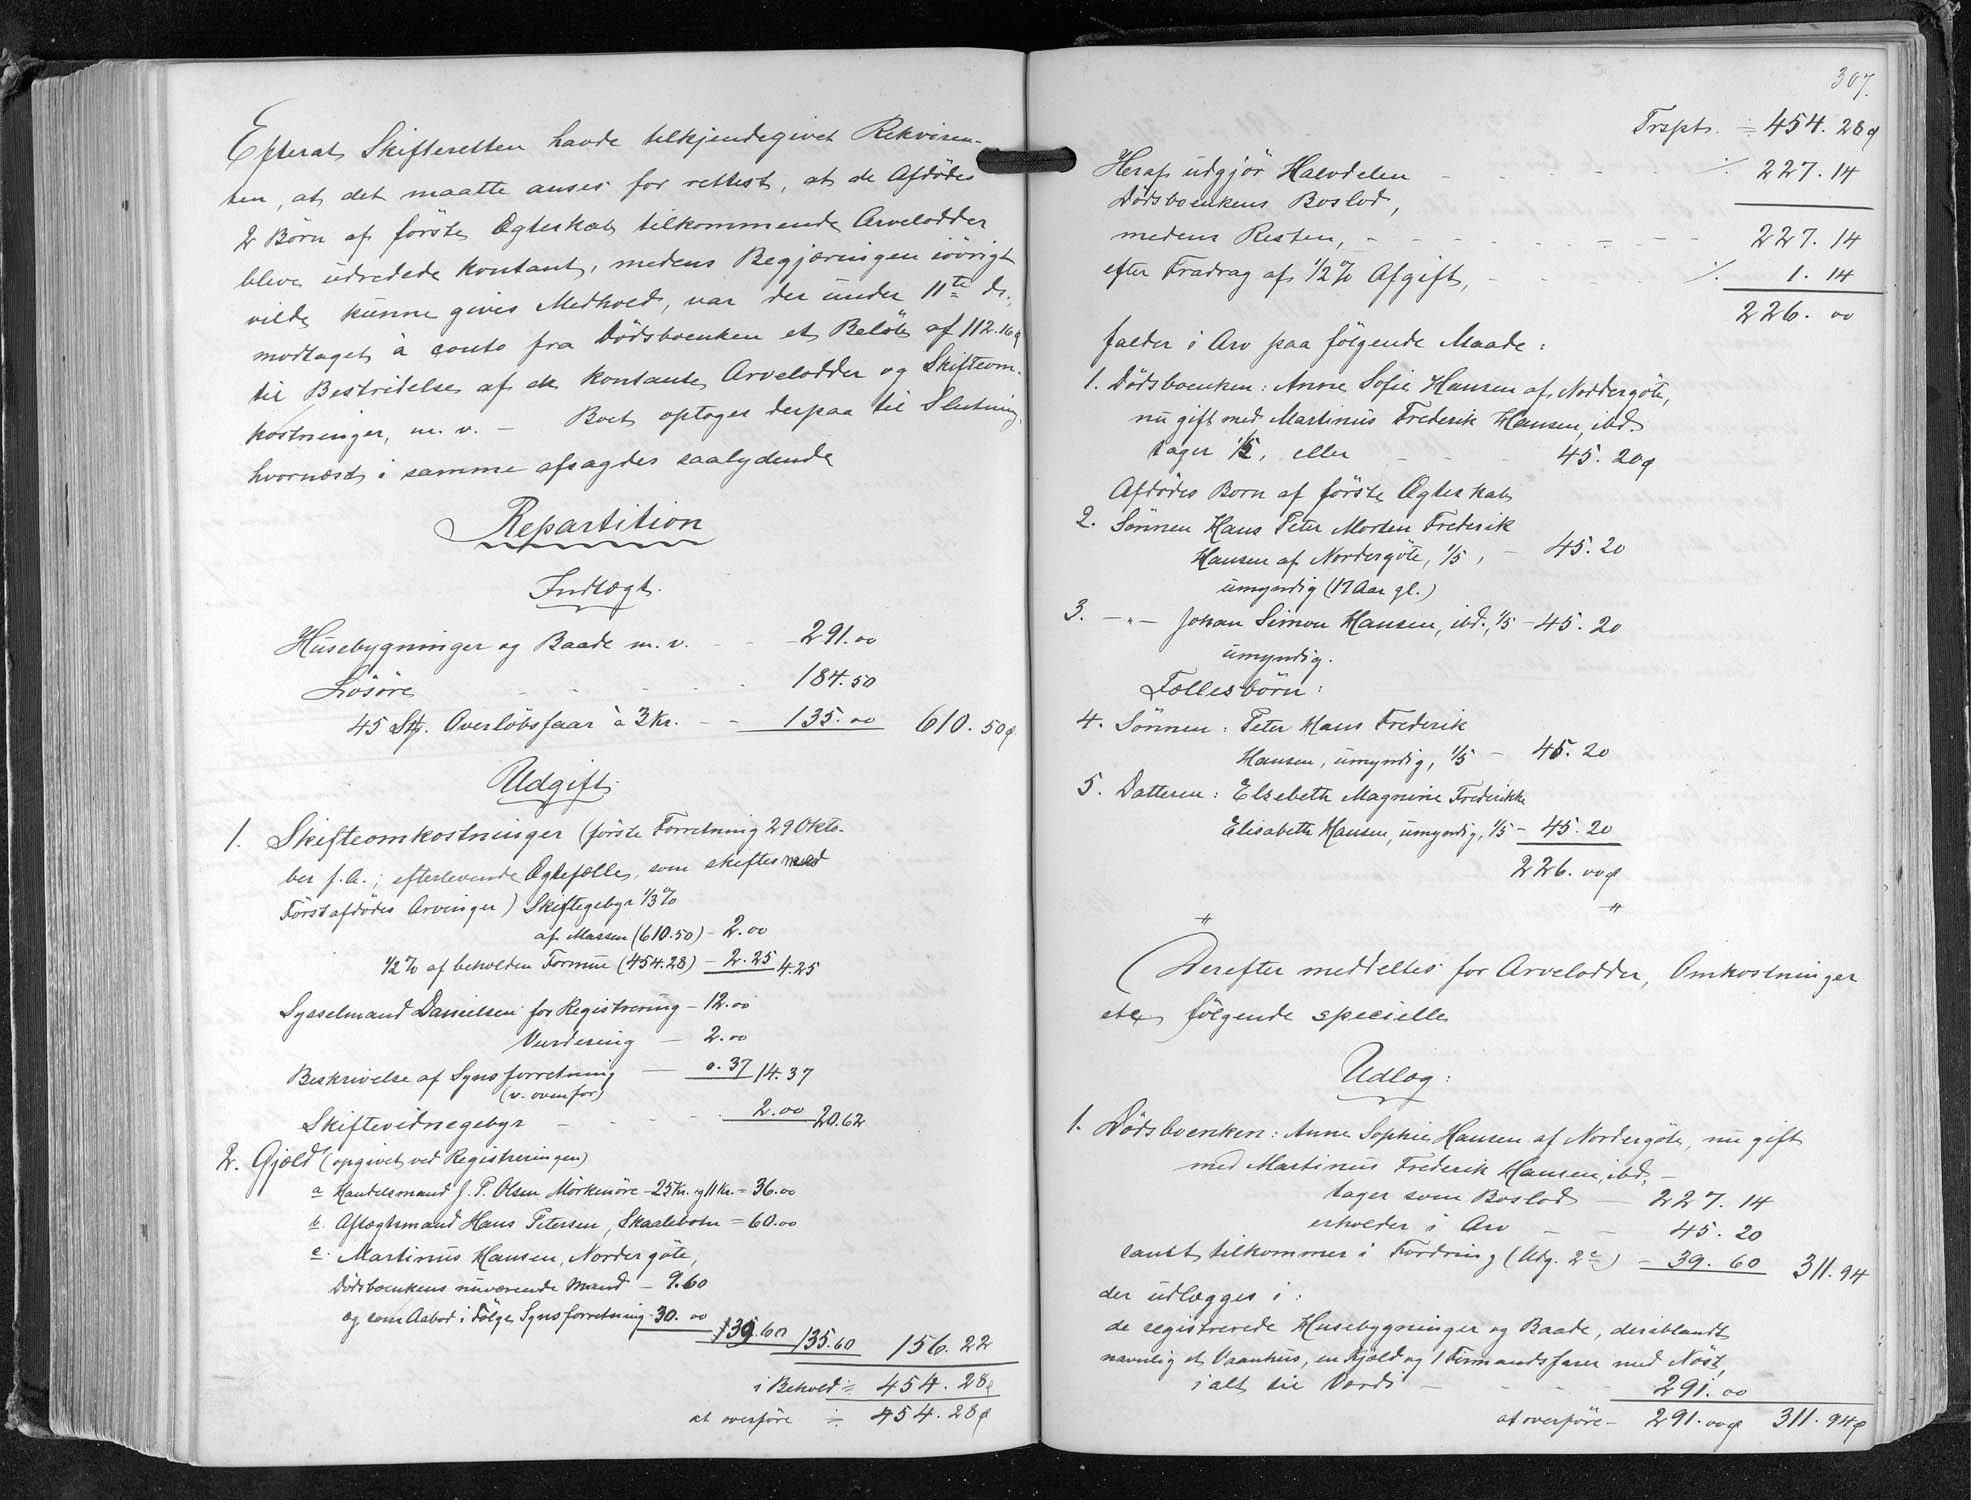 Efterat Skifteretten havde tilkjendegivet Rekviren-
ten, at det maatte anses for rettest, at de Afdødes
2 Børn af første Ægteskab tilkommende Arvelodder
bleve udredede kontant, medens Begjæringen iøvrigt
vilde kunne gives Medhold, var der under 11te ds.
modtaget à conto fra Dødsboenken et Beløb af 112.16 ø
til Bestridelse af de kontante Arvelodder og Skifteom-
kostninger, m. v. – Boet optoges derpaa til Slutning,
hvornæst i samme afsagdes saalydende
Repartition
Indtægt.
Husebygninger og Baade m. v. - - 291.00
Løsøre - - - - 184.50
45 Stk. Overløbsfaar à 3 Kr. - - 135.00 610.50 ø
Udgift.
1. Skifteomkostninger (første Forretning 29 Okto-
ber f. A.; efterlevende Ægtefælle, som skiftes med
Førstafdødes Arvinger) Skiftegebyr 1/3 %
af Massen (610.50) - 2.00
1/2 % af beholden Formue (454.28) - 2.25 4.25
Sysselmand Danielsen for Registrering - 12.00
Vurdering - 2.00
Beskrivelse af Synsforretning - 0.37 14.37
(v. ovenfor)
Skiftevidnegebyr - - - 2.00 20.62
2. Gjæld (opgivet ved Registreringen)
a Handelsmand J. P. Olsen Mørkenøre - 25 Kr. og 11 Kr. = 36.00
b. Aftægtsmand Hans Petersen, Skaalebotn = 60.00
c. Martinus Hansen, Nordergøte,
Dødsboenkens nuværende Mand - 9.60
og som Aabod i Følge Synsforretning 30.00
135.60 135.60 156.22
i Behold = 454.28 ø
at overføre = 454.28 ø
307.
Trspt. = 454.28 ø
Heraf udgjør Halvdelen - - - - ./. 227.14
Dødsboenkens Boslod,
medens Resten, - - - - - - - 227.14
efter Fradrag af 1/2 % Afgift, - - - ./. 1.14
226.00
falder i Arv paa følgende Maade:
1. Dødsboenken: Anne Sofie Hansen af Noddergøte,
nu gift med Martinus Frederik Hansen, ibd.
tager 1/5, eller - - - 45.20 ø
Afdødes Børn af første Ægteskab
2. Sønnen Hans Peter Morten Frederik
Hansen af Nordergøte, 1/5, - 45.20
umyndig (17 Aar gl.)
3. - " - Johan Simon Hansen, ibd., 1/5 - 45.20
umyndig.
Fællesbørn:
4. Sønnen: Peter Hans Frederik
Hansen, umyndig, 1/5 - 45.20
5. Datteren: Elsebeth Magnine Frederikke
Elisabeth Hansen, umyndig, 1/5 - 45.20
226.00 ø
"
"
Derefter meddeltes for Arvelodder, Omkostninger
etc. følgende specielle
Udlæg:
1. Dødsboenken: Anne Sophie Hansen af Nordergøte, nu gift
med Martinus Frederik Hansen, ibd. -
tager som Boslod - 227.14
erholder i Arv - - 45.20
samt tilkommer i Fordring (Udg. 2c) - 39.60 311.94
der udlægges i:
de registrerede Husebygninger og Baade, deriblandt
navnlig et Vaanhus, en Kjæld og 1 Firmandsfarer med Nøst,
i alt til Værdi - - - - 291.00
at overføre - 291.00 ø 311.94 ø